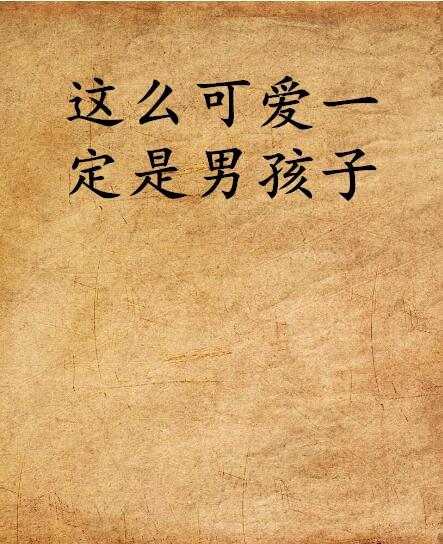 这么可爱一
定是男孩子